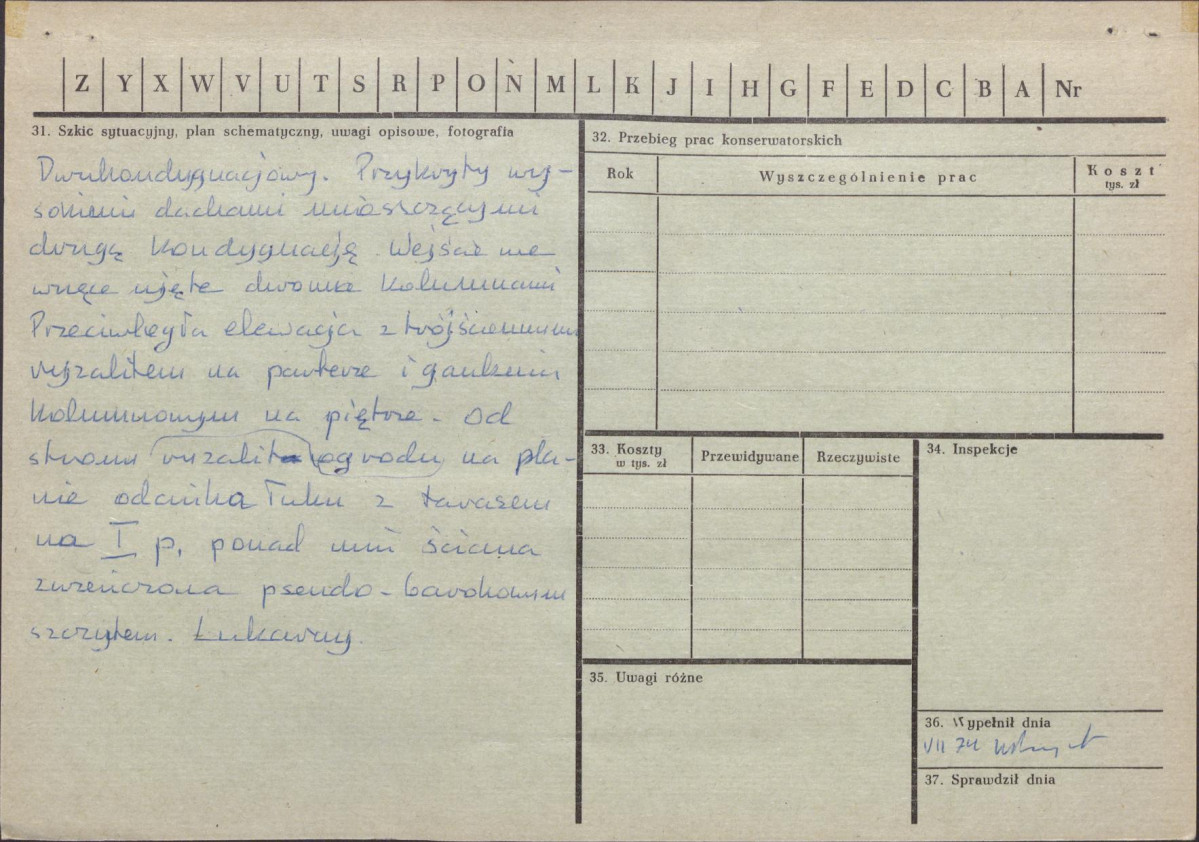 Z Y X W V U T S R P O Ń M L K J I H G F E D C B A Nr
31. Szkic sytuacyjny, plan schematyczny, uwagi opisowe, fotografia
Dwukondygnacjowy. Przykryty wy-
sokimi dachami mieszczącymi
drugą kondygnację. Wejście we
wnęce ujęte dwoma kolumnami
Przeciwległa elewacja z trójściennym
ryzalitem na parterze i gankiem
kolumnowym na piętrze. Od
strony ryzalit ogrodu na pla-
nie odcinka łuku z tarasem
na I p, ponad nim ściana
zwieńczona pseudo-barokowym
szczytem.
32. Przebieg prac konserwatorskich
Rok
Wyszczególnienie prac
Koszt
tys. zł
33. Koszty
w tys. zł
Przewidywane
Rzeczywiste
34. Inspekcje
35. Uwagi różne
36. Wypełnił dnia
VII 74
37. Sprawdził dnia